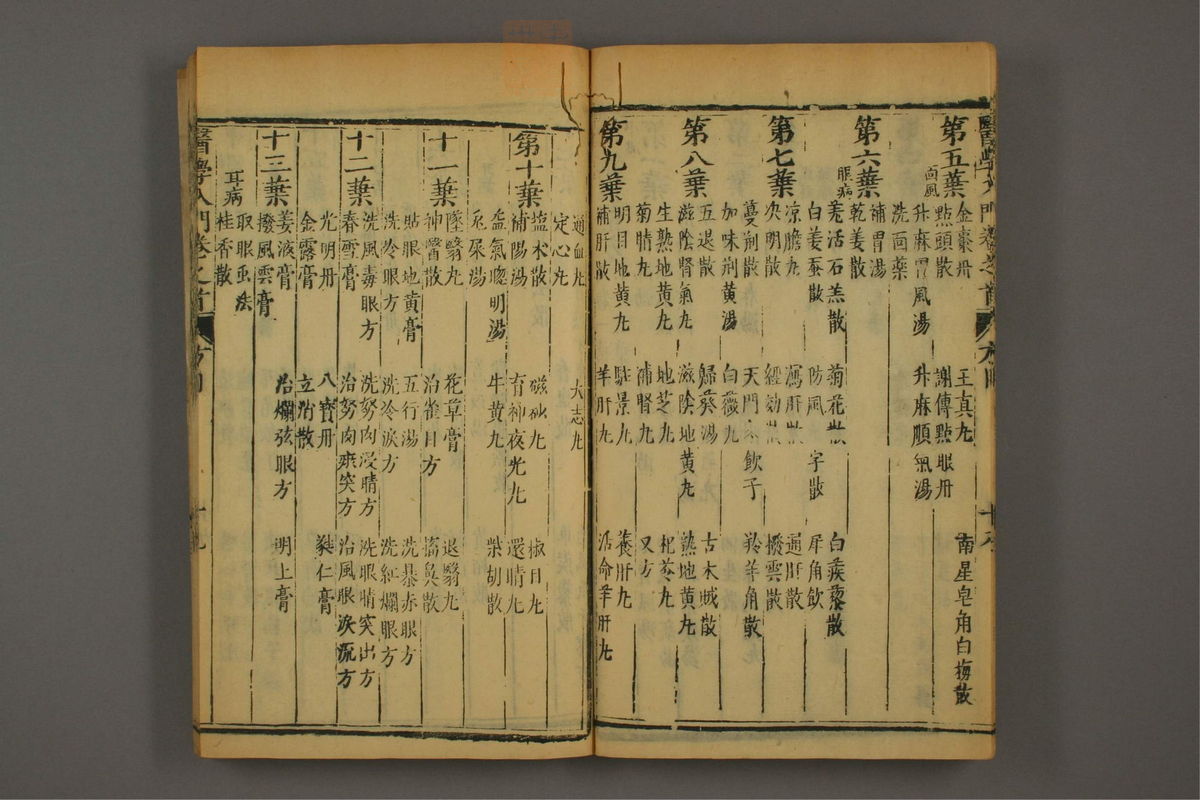 醫學入門卷之首
第五葉
面風
金棗丹 王真丸 南星皂角白梅散
點頭散 謝傳點眼丹
升麻胃風湯 升麻順氣湯
洗面藥
第六葉
眼病
補胃湯
乾姜散
羌活石羔散 菊花散 白蒺藜散
白姜蚕散 防風 字散 犀角飲
第七葉
凉膽丸 瀉肝散 通肝散
决明散 經効散 撥雲散
蔓荆散 天門 飲子 羚羊角散
加味荆黄湯 白薇丸
第八葉
五退散 歸葵湯 古木賊散
滋陰腎氣丸 滋陰地黄丸 熟地黄丸
生熟地黄丸 地芝丸 杞苓丸
菊睛丸 補腎丸 又方
第九葉
明目地黄丸 駐景丸 養肝丸
補肝散 羊肝丸 活命羊肝丸
通血丸 大志丸
定心丸
第十葉
塩术散 磁砂丸 椒目丸
補陽湯 育神夜光丸 還睛丸
益氣聰明湯 牛黄丸 柴胡散
兎屎湯
十一葉
墜翳丸 花草膏 退翳丸
神醫散 治雀目方 搐鼻散
貼眼地黄膏 五行湯 洗暴赤眼方
洗冷眼方 洗冷淚方 洗紅爛眼方
十二葉
洗風毒眼方 洗努肉浸睛方 洗眼睛突出方
春雪膏 治努肉乘突方 治風眼淚流方
光明丹 八寶丹 蕤仁膏
金露膏 立治散
十三葉
姜液膏 治爛弦眼方 明上膏
撥風雲膏
耳病
取眼虫法
桂香散
醫學入門卷之首
方目
十九